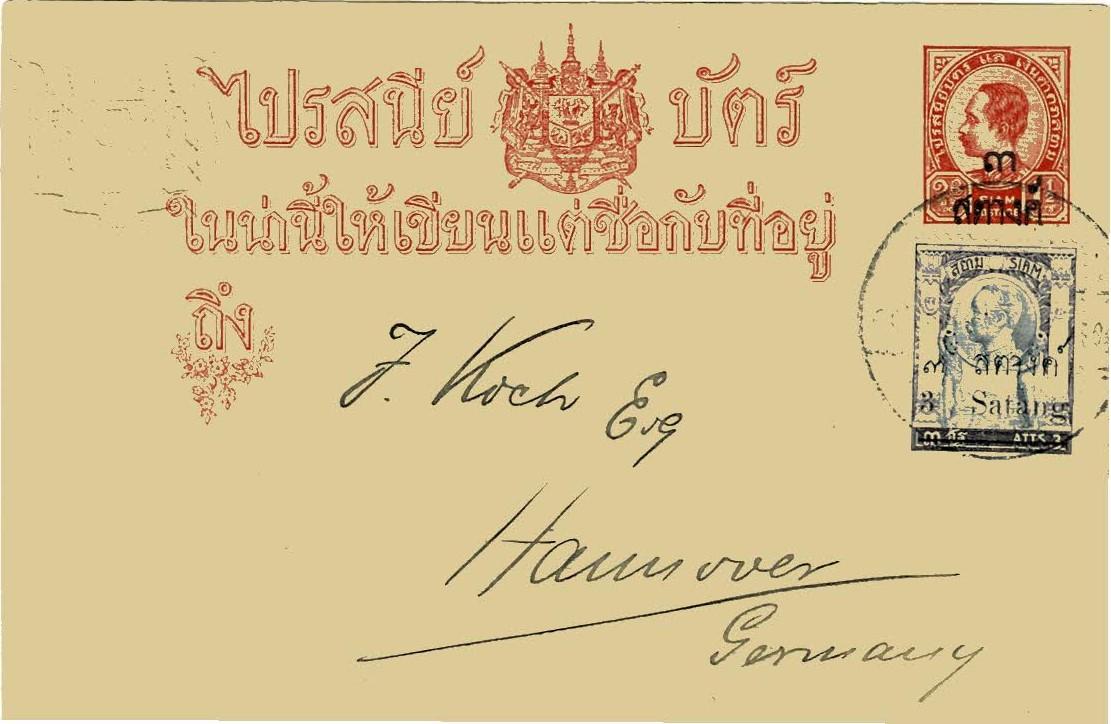 ไปรสนีย์ บัตร์
ในน่านี้ให้เขียนแต่ชื่อกับที่อยู่
ถึง
๓
สตางค์
สยาม SIAM
๓ สตางค์
3 Satang
๓ อัฐ ATTS. 3.
J. Koch Esq
Hannover
Germany